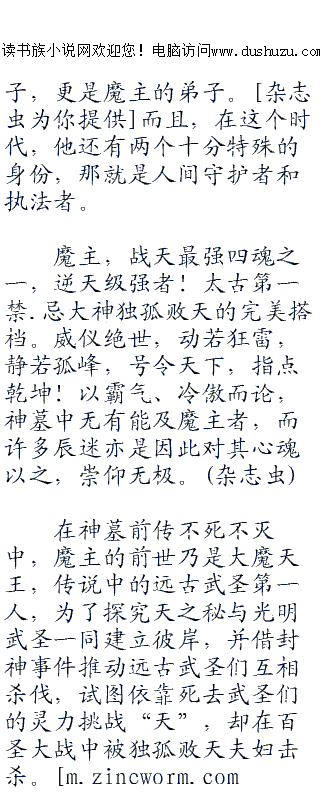 读书族小说网欢迎您！电脑访问www.dushuzu.com
子，更是魔主的弟子。[杂志
虫为你提供]而且，在这个时
代，他还有两个十分特殊的
身份，那就是人间守护者和
执法者。
魔主，战天最强四魂之
一，逆天级强者！太古第一
禁.忌大神独孤败天的完美搭
档。威仪绝世，动若狂雷，
静若孤峰，号令天下，指点
乾坤！以霸气、冷傲而论，
神墓中无有能及魔主者，而
许多辰迷亦是因此对其心魂
以之，崇仰无极。(杂志虫)
在神墓前传不死不灭
中，魔主的前世乃是大魔天
王，传说中的远古武圣第一
人，为了探究天之秘与光明
武圣一同建立彼岸，并借封
神事件推动远古武圣们互相
杀伐，试图依靠死去武圣们
的灵力挑战“天”，却在百
圣大战中被独孤败天夫妇击
杀。[m.zincworm.com